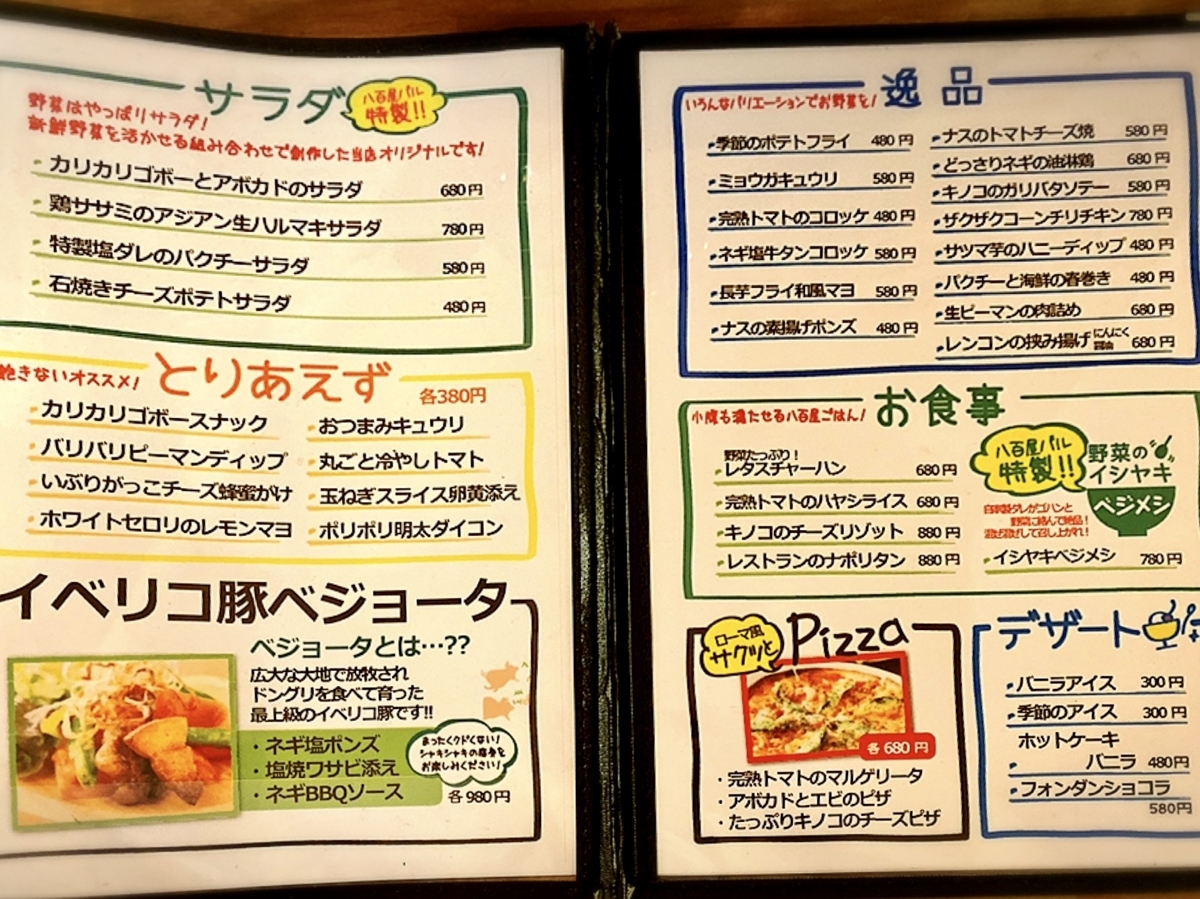 サラダ
八百屋バル
特製!!
野菜はやっぱりサラダ!
新鮮野菜を活かせる組み合わせで創作した当店オリジナルです!
カリカリゴボーとアボカドのサラダ 680円
鶏ササミのアジアン生ハルマキサラダ 780円
特製塩ダレのパクチーサラダ 580円
石焼きチーズポテトサラダ 480円
飽きないオススメ! とりあえず 各380円
カリカリゴボースナック
バリバリピーマンディップ
いぶりがっこチーズ蜂蜜がけ
ホワイトセロリのレモンマヨ
おつまみキュウリ
丸ごと冷やしトマト
玉ねぎスライス卵黄添え
ポリポリ明太ダイコン
イベリコ豚ベジョータ
ベジョータとは…??
広大な大地で放牧され
ドングリを食べて育った
最上級のイベリコ豚です!!
・ネギ塩ポンズ
・塩焼ワサビ添え
・ネギBBQソース
まったくクドくない!
シャキシャキの食感を
お楽しみください!
各980円
逸品
いろんなバリエーションでお野菜を!
季節のポテトフライ 480円
ミョウガキュウリ 580円
完熟トマトのコロッケ 480円
ネギ塩牛タンコロッケ 580円
長芋フライ和風マヨ 580円
ナスの素揚げポンズ 480円
ナスのトマトチーズ焼 580円
どっさりネギの油淋鶏 680円
キノコのガリバタソテー 580円
ザクザクコーンチリチキン 780円
サツマ芋のハニーディップ 480円
パクチーと海鮮の春巻き 480円
生ピーマンの肉詰め 680円
レンコンの挟み揚げ にんにく醤油 680円
お食事
小腹も満たせる八百屋ごはん!
野菜たっぷり!
レタスチャーハン 680円
完熟トマトのハヤシライス 680円
キノコのチーズリゾット 880円
レストランのナポリタン 880円
八百屋バル
特製!!
野菜の
イシヤキ
ベジメシ
自家製ダレがゴハンと
野菜に絡んで絶品!
混ぜ混ぜして召し上がれ!
イシヤキベジメシ 780円
ローマ風
サクッと
Pizza
各680円
・完熟トマトのマルゲリータ
・アボカドとエビのピザ
・たっぷりキノコのチーズピザ
デザート
バニラアイス 300円
季節のアイス 300円
ホットケーキ
バニラ 480円
フォンダンショコラ
580円